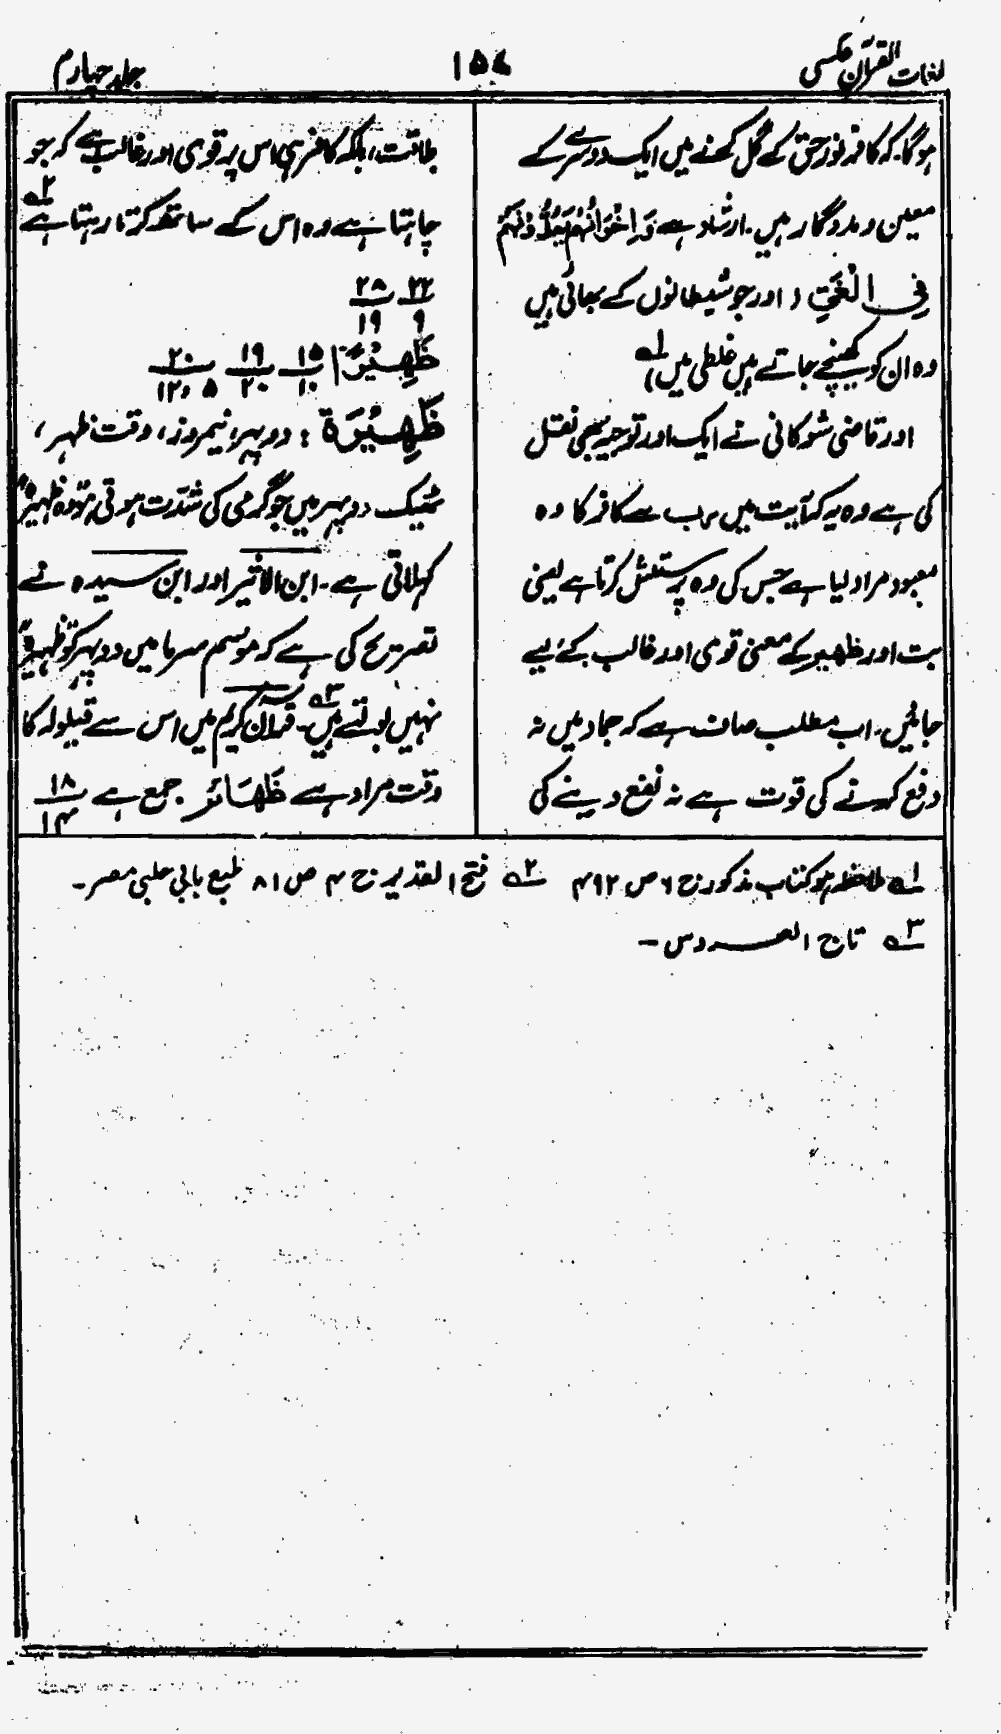 لغات القرآن عکسی
۱۵۷
جلد چہارم
ہوگا۔ کہ کافر نورِ حق کے گُل کرنے میں ایک دوسرے کے
معین و مددگار ہیں۔ ارشاد ہے وَاِخْوَانُهُمْ يَمُدُّوْنَهُمْ
فِى الْغَيِّ ( اور جو شیطانوں کے بھائی ہیں
وہ ان کو کھینچے جاتے ہیں غلطی میں) ۱ے
اور قاضی شوکانی نے ایک اور توجیہ بھی نقل
کی ہے وہ یہ کہ آیت میں رب سے کافر کا وہ
معبود مراد لیا ہے جس کی وہ پرستش کرتا ہے یعنی
بت اور ظہیر کے معنی قوی اور غالب کے لیے
جائیں۔ اب مطلب صاف ہے کہ جماد میں نہ
دفع کرنے کی قوت ہے نہ نفع دینے کی
طاقت، بلکہ کافر ہی اس پر قوی اور غالب ہے کہ جو
چاہتا ہے وہ اس کے ساتھ کرتا رہتا ہے ۲ے
۲۲ ۲۸
۹ ۱۹
ظَهِيْرًا ۱۵ ۱۹ ۲۰
۱۰ ۲۰ ۵ ،۱۲
ظَهِيْرَة : دوپہر، نیمروز، وقت ظہر،
ٹھیک دوپہر میں جو گرمی کی شدّت ہوتی ہے وہ ظہیرۃ
کہلاتی ہے۔ ابن الاثیر اور ابن سیدہ نے
تصریح کی ہے کہ موسم سرما میں دوپہر کو ظہیرۃ
نہیں بولتے ہیں۔ ۳ے قرآن کریم میں اس سے قیلولہ کا
وقت مراد ہے ظَهَائر جمع ہے ۱۸
۱۴
۱ے ملاحظہ ہو کتاب مذکور ج ۶ ص ۴۹۲ ۲ے فتح القدیر ج ۴ ص ۸۱ طبع بابی حلبی مصر۔
۳ے تاج العروس۔